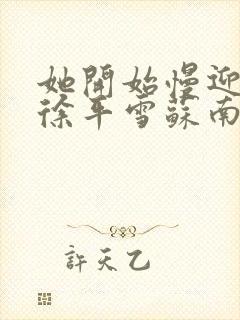 她開始慢迎
徐平雪蘇南
許天乙